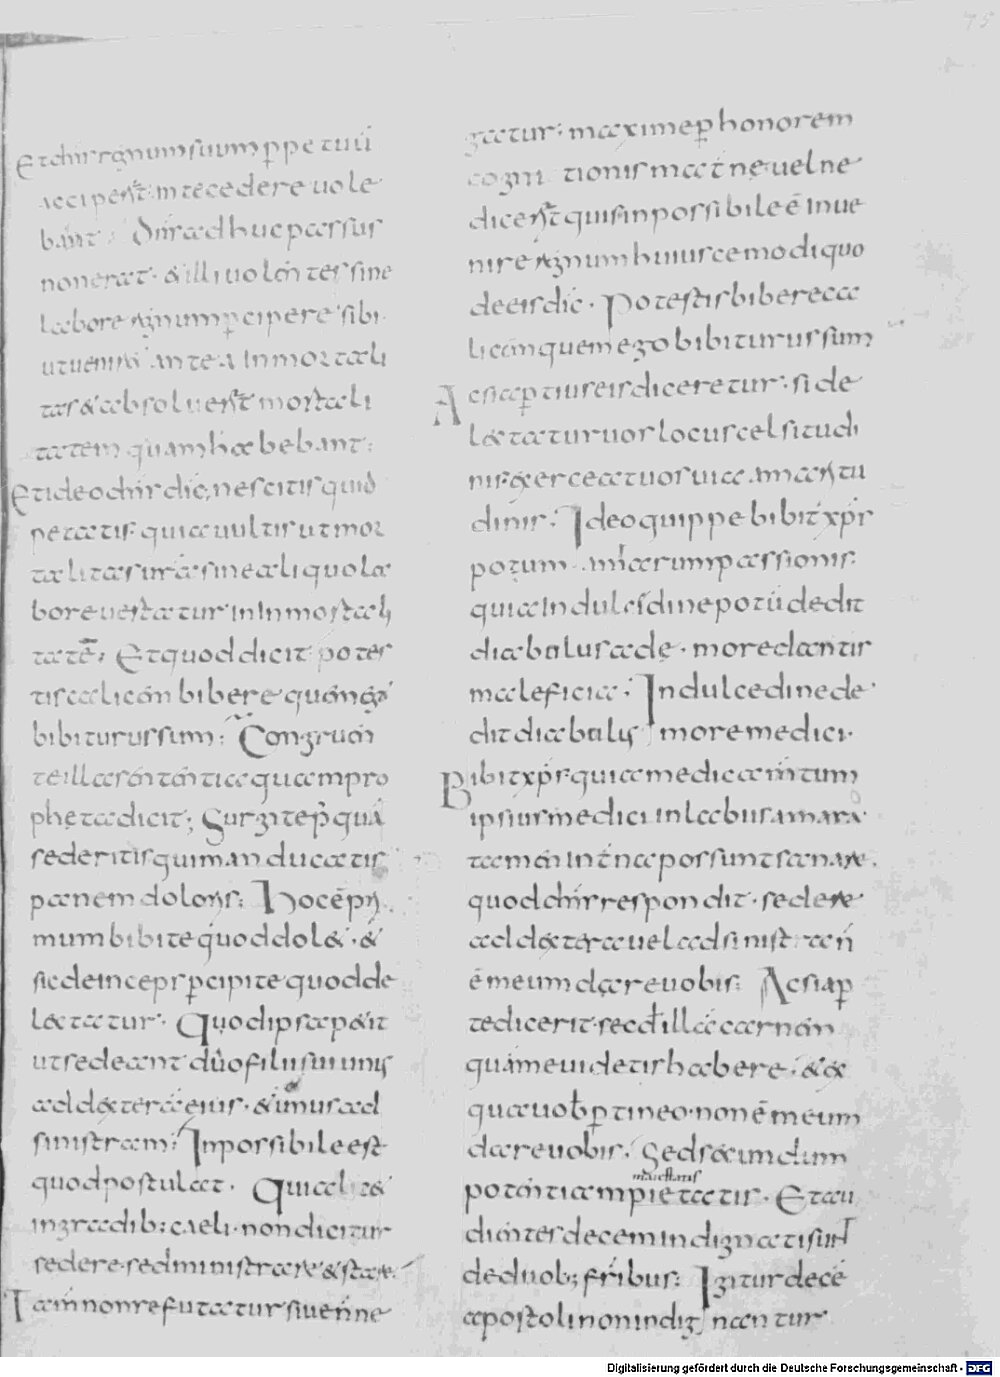 75
Et dn̄s regnum suum ꝑpetuū
acciper̄t intecedere uole
bant. Dn̄s adhuc passus
non erat. & illi uolentes sine
labore regnum ꝑcipere sibi
ut ueniret antea inmortali
tas & absoluer̄t mortali
tatem quam habebant:
Et ideo dn̄s dic̄; nescitis quid
petatis. quia uultis ut mor
talitas ur̄a sine aliquo la
bore uertatur in inmortali
tatē: Et quod dicit potes
tis calicem bibere quem ego
bibiturus sum: Congruen
te illa sententia quam pro
pheta dicit; Surgite p̄quā
sederitis qui manducatis
panem doloris: Hoc ē pri
mum bibite quod dol&. &
sic deinceps ꝑcipite quod de
lectatur. Quod ipsa petit
ut sedeant duo filii sui unus
ad dexterā eius. & unus ad
sinistram: Inpossibile est
quod postulat. Qui alii &
ingradib; caeli. non dicitur
sedere. sed ministrare & stare.
Tam̄ non refutatur si uen̄ ne
gatur. maxime ꝑ honorem
cogni tionis mat̄ne. uel ne
dicer̄t quis inpossibile ē inue
nire regnum huiuscemodi quo
deeis dic̄. Potestis bibere ca
licem quem ego bibiturus sum
Ac si aꝑtius eis diceretur. si de
lectatur uos locus celsitudi
nis. exerceat uos uia amaritu
dinis: Ideo quippe bibit xp̄s
potum am̄arum passionis.
quia in dulcidine potū dedit
diabulus adę. more dantis
maleficia: In dulcedine de
dit diabulus more medici.
Bibit xp̄s. quia medicam̄tum
ipsius medici in labiis amara
tamen int̄na possunt sanare.
quod dn̄s respondit. sedere
ad dexterā uel ad sinistram n̄
ē meum dare uobis: Ac si aꝑ
te dicerit. secd̄ illā carnem
quam me uidetis habere. & ex
qua uob̄ ꝑtineo. non ē meum
dare uobis. Sed secundum
maiestatis
potentiam pietatis. Et au
dientes decem indignati sunt
de duob; fr̄ibus: Igitur decē
apostoli non indignantur
Digitalisierung gefördert durch die Deutsche Forschungsgemeinschaft - DFG